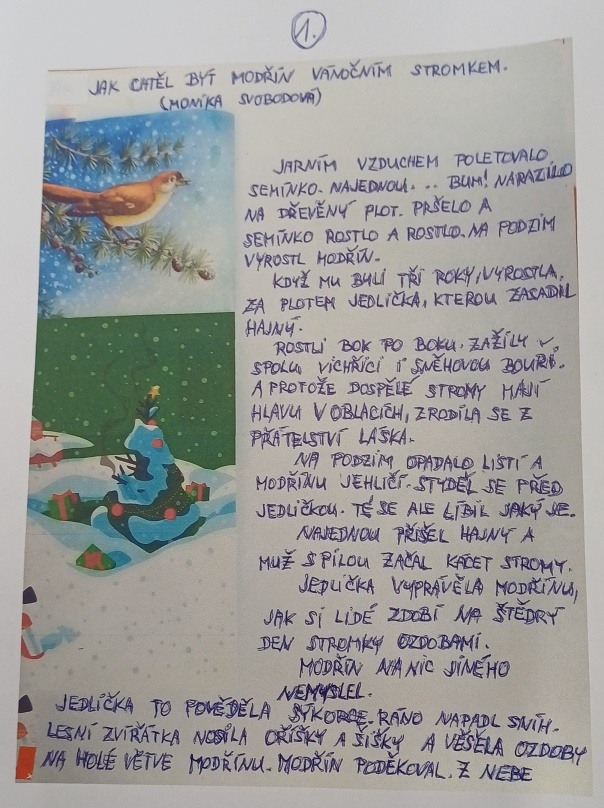 1.
JAK CHTĚL BÝT MODŘÍN VÁNOČNÍM STROMKEM.
(MONIKA SVOBODOVÁ)
JARNÍM VZDUCHEM POLETOVALO
SEMÍNKO. NAJEDNOU... BUM! NARAZILO
NA DŘEVĚNÝ PLOT. PRŠELO A
SEMÍNKO ROSTLO A ROSTLO. NA PODZIM
VYROSTL MODŘÍN.
KDYŽ MU BYLI TŘI ROKY, VYROSTLA,
ZA PLOTEM JEDLIČKA, KTEROU ZASADIL
HAJNÝ.
ROSTLI BOK PO BOKU. ZAŽILY
SPOLU VICHŘICI I SNĚHOVOU BOUŘI.
A PROTOŽE DOSPĚLÉ STROMY MAJÍ
HLAVU V OBLACÍCH, ZRODILA SE Z
PŘÁTELSTVÍ LÁSKA.
NA PODZIM OPADALO LISTÍ A
MODŘÍNU JEHLIČÍ. STYDĚL SE PŘED
JEDLIČKOU. TÉ SE ALE LÍBIL JAKÝ JE.
NAJEDNOU PŘIŠEL HAJNÝ A
MUŽ S PILOU ZAČAL KÁCET STROMY.
JEDLIČKA VYPRÁVĚLA MODŘÍNU,
JAK SI LIDÉ ZDOBÍ NA ŠTĚDRÝ
DEN STROMKY OZDOBAMI.
MODŘÍN NA NIC JINÉHO
NEMYSLEL.
JEDLIČKA TO POVĚDĚLA SÝKORCE. RÁNO NAPADL SNÍH.
LESNÍ ZVÍŘÁTKA NOSILA OŘÍŠKY A ŠIŠKY A VĚŠELA OZDOBY
NA HOLÉ VĚTVE MODŘÍNU. MODŘÍN PODĚKOVAL. Z NEBE